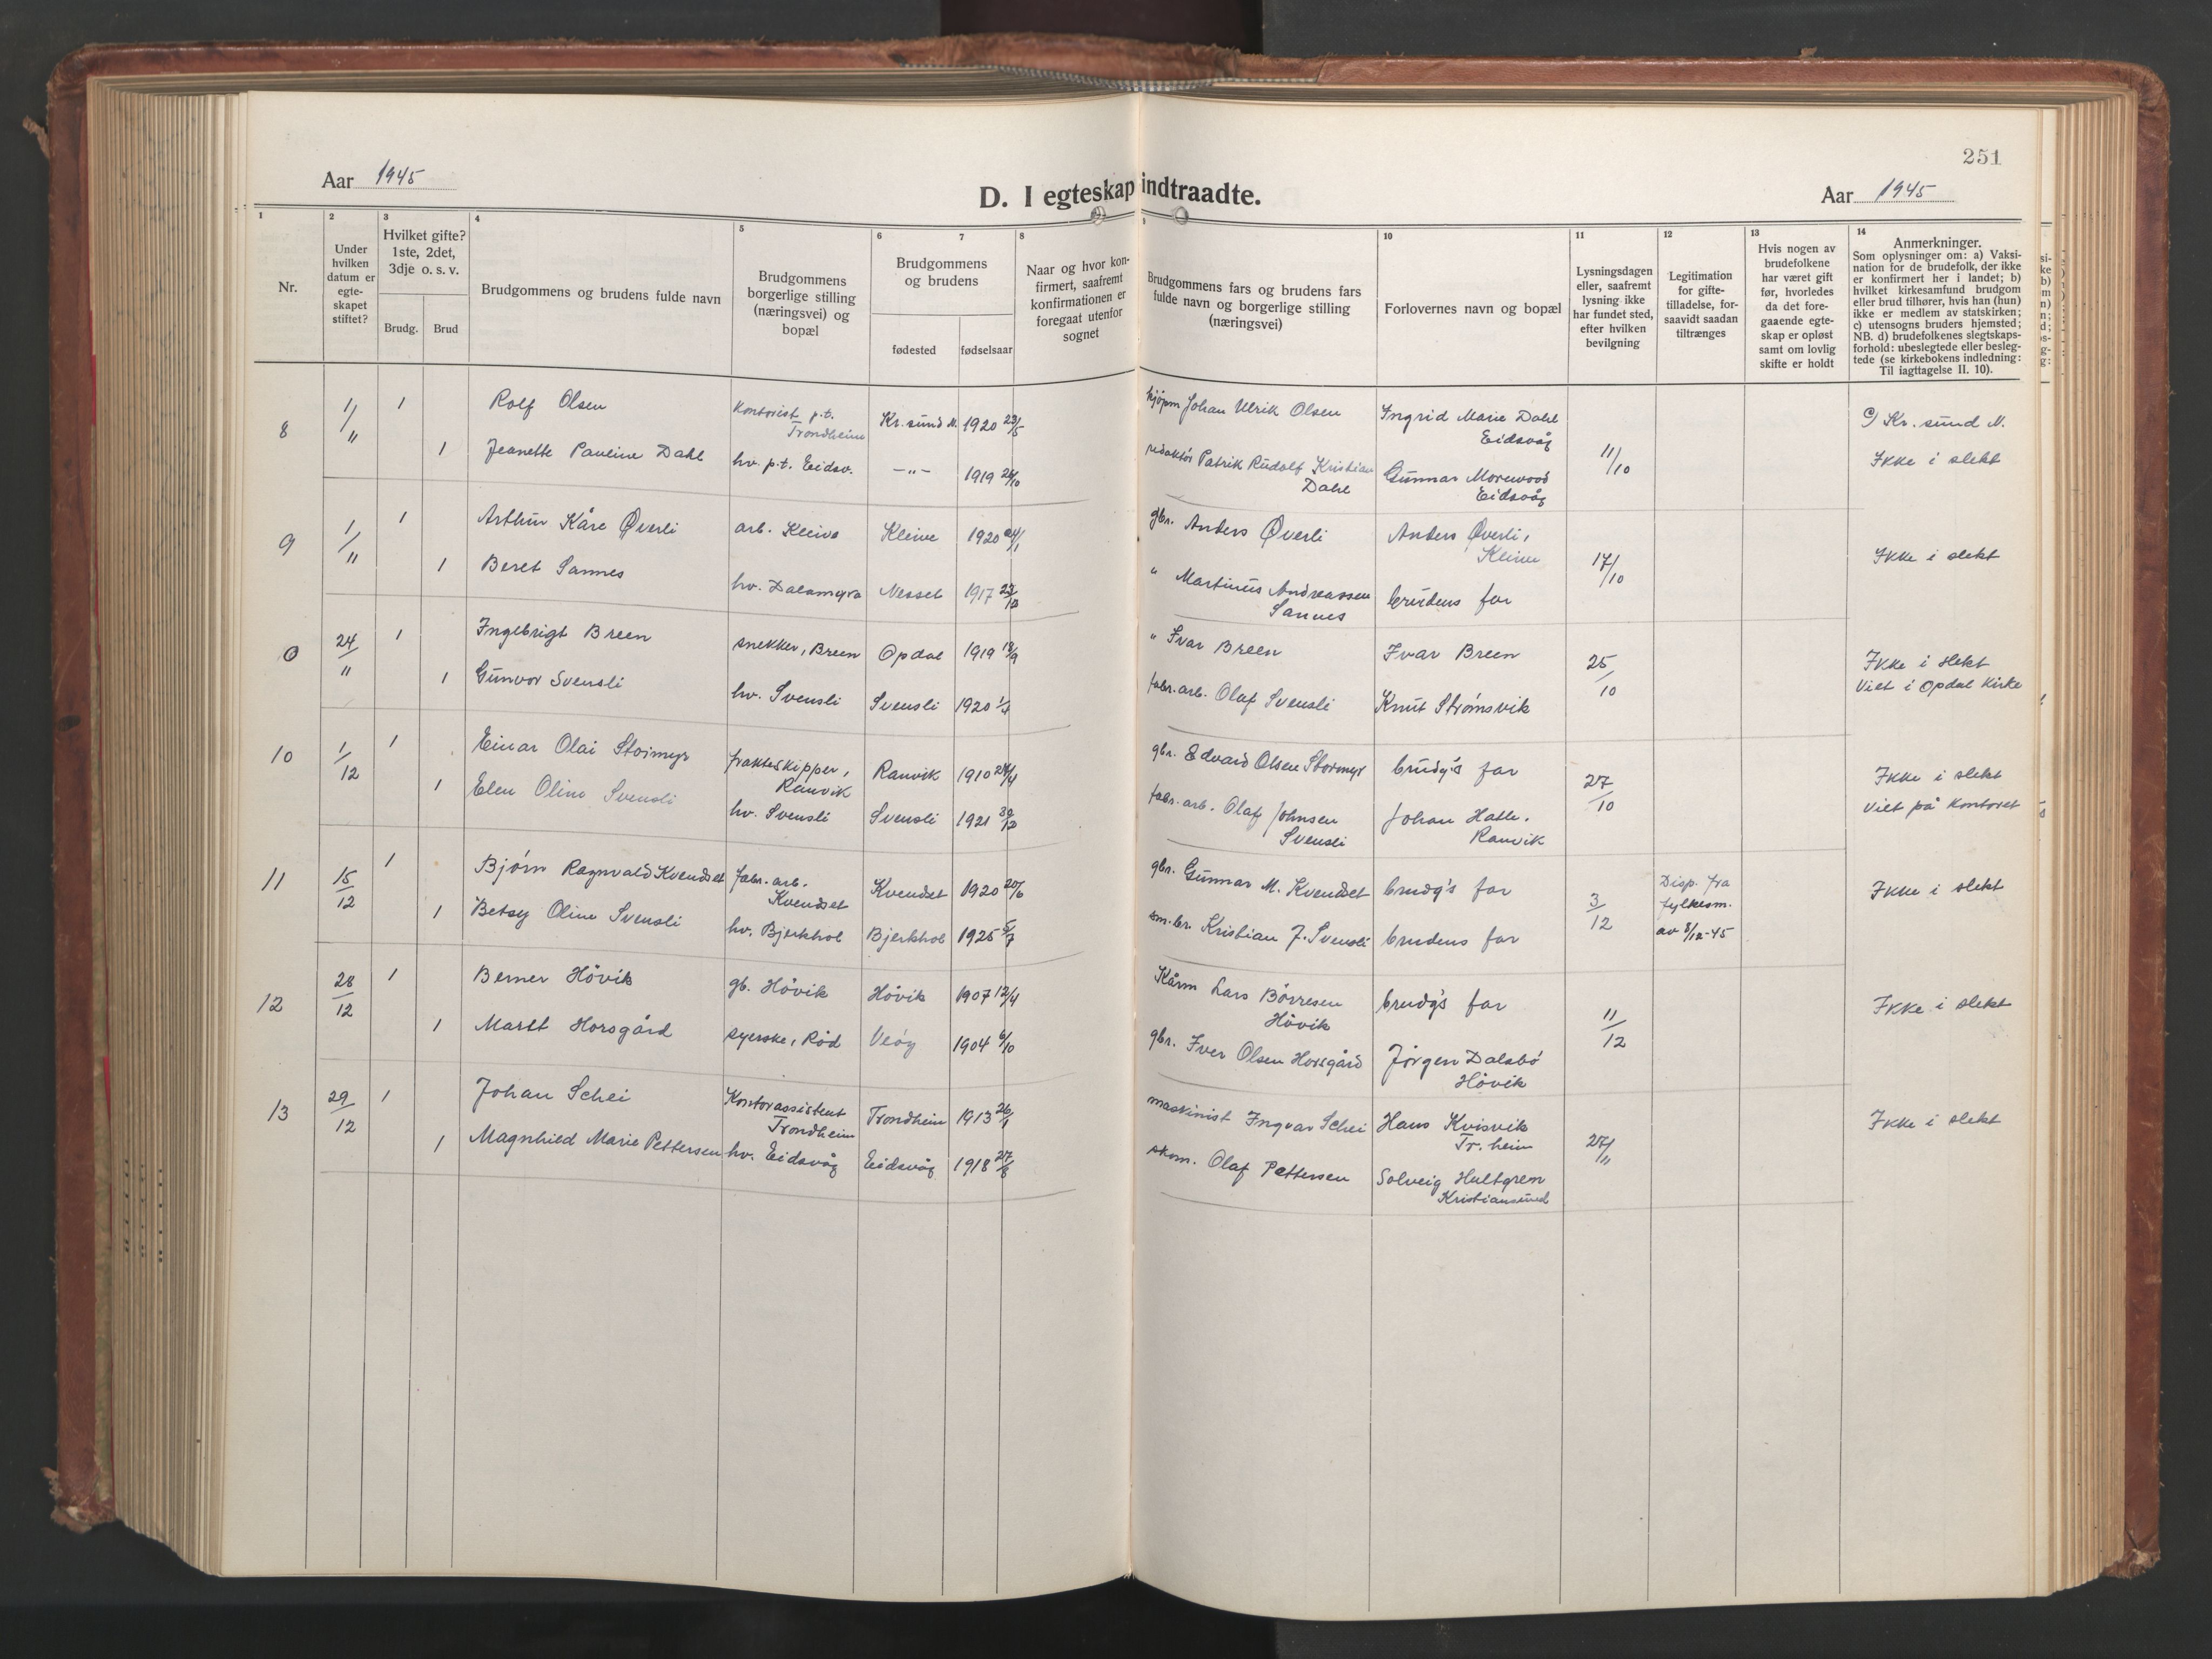 251
Aar 1945
D. I egteskap indtraadte.
Aar 1945
1 2 3 4 5 6 7 8 9 10 11 12 13 14
Nr.
Under
hvilken
datum er
egte-
skapet
stiftet?
Hvilket gifte?
1ste, 2det,
3dje o. s. v.
Brudg. Brud
Brudgommens og brudens fulde navn
Brudgommens
borgerlige stilling
(næringsvei) og
bopæl
Brudgommens
og brudens
fødested fødselsaar
Naar og hvor kon-
firmert, saafremt
konfirmationen er
foregaat utenfor
sognet
Brudgommens fars og brudens fars
fulde navn og borgerlige stilling
(næringsvei)
Forlovernes navn og bopæl
Lysningsdagen
eller, saafremt
lysning ikke
har fundet sted,
efter hvilken
bevilgning
Legitimation
for gifte-
tilladelse, for-
saavidt saadan
tiltrænges
Hvis nogen av
brudefolkene
har været gift
før, hvorledes
da det fore-
gaaende egte-
skap er opløst
samt om lovlig
skifte er holdt
Anmerkninger.
Som oplysninger om: a) Vaksi-
nation for de brudefolk, der ikke
er konfirmert her i landet; b)
hvilket kirkesamfund brudgom
eller brud tilhører, hvis han (hun)
ikke er medlem av statskirken;
c) utensogns bruders hjemsted;
NB. d) brudefolkenes slegtskaps-
forhold: ubeslegtede eller besleg-
tede (se kirkebokens indledning:
Til iagttagelse II. 10).
8 1/11 1 Rolf Olsen Kontorist p.t. Trondheim Kr.sund N. 1920 23/5 kjøpm Johan Ulrik Olsen Ingrid Marie Dahl Eidsvåg 11/10 c) Kr. sund N.
1 Jeanette Pauline Dahl hv. p.t. Eidsv. —"— 1919 /10 redaktør Patrik Rudolf Kristian Dahl Gunnar Morewood Eidsvåg Ikke i slekt
9 1/11 1 Arthur Kåre Øverli arb. Kleive Kleive 1920 24/1 gbr. Anders Øverli Anders Øverli, Kleive 17/10 Ikke i slekt
1 Beret Sannes hv. Dalamyra Nesset 1917 /12 " Martinus Andreassen Sannes brudens far
0 24/11 1 Ingebrigt Breen snekker, Breen Opdal 1919 /9 " Ivar Breen Ivar Breen 25/10 Ikke i slekt
1 Gunvor Svensli hv. Svensli Svensli 1920 1/4 fabr. arb. Olaf Svensli Knut Strømsvik Viet i Opdal Kirke
10 1/12 1 Einar Olai Stormyr frakteskipper, Ranvik Ranvik 1910 24/4 gbr. Edvard Olsen Stormyr brudg's far 27/10 Ikke i slekt
1 Elen Oline Svensli hv. Svensli Svensli 1921 30/12 fabr. arb. Olaf Johnsen Svensli Johan Hatle. Ranvik Viet på kontoret
11 15/12 1 Bjørn Ragnvald Kvendset fabr. arb. Kvendset Kvendset 1920 20/6 gbr. Gunnar M. Kvendset brudg's far 3/12 Disp. fra fylkesm. av 8/12-45 Ikke i slekt
1 Betsy Oline Svensli hv. Bjerkhol Bjerkhol 1925 5/7 sm. br. Kristian J. Svensli brudens far
12 28/12 1 Berner Hövik gb. Hövik Hövik 1907 12/4 Kårm Lars Börresen Hövik brudg's far 11/12 Ikke i slekt
1 Marit Horsgård syerske, Röd Veöy 1904 6/10 gbr. Iver Olsen Horsgård Jörgen Dalsbö Hövik
13 29/12 1 Johan Schei Kontorassistent Trondheim Trondheim 1913 26/1 maskinist Ingvar Schei Hans Kvisvik Tr. heim 27/11 Ikke i slekt
1 Magnhild Marie Pettersen hv. Eidsvåg Eidsvåg 1918 27/8 skom. Olaf Pettersen Solveig Hultgren Kristiansund